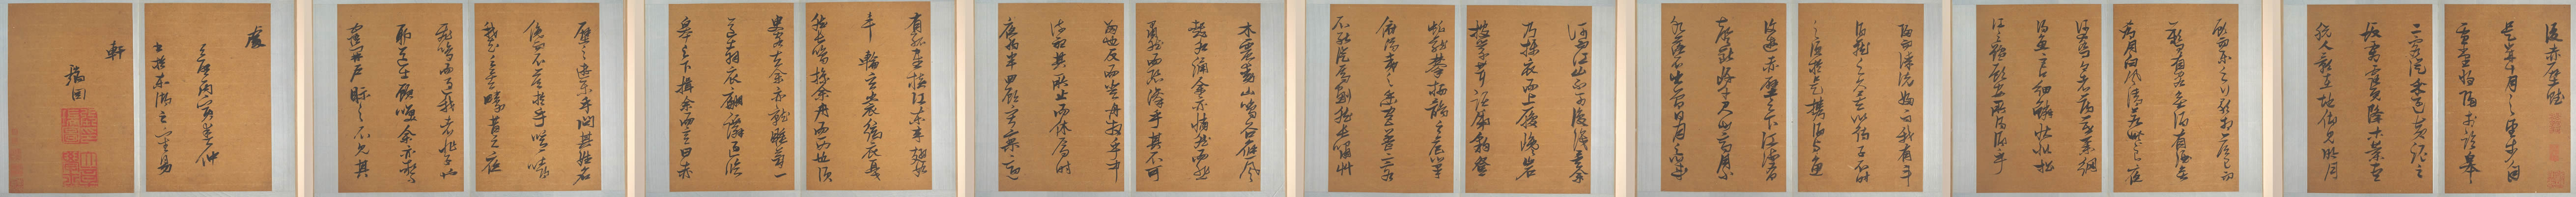 後赤壁賦
是歲十月之望步自
雪堂將歸于臨皋
二客從予過黃泥之
坂霜露既降木葉盡
脫人影在地仰見明月
顧而樂之行歌相答已而
歎曰有客無酒有酒無
肴月白風清如此良夜
何客曰今者薄暮舉網
得魚巨口細鱗狀如松
江之鱸顧安所得酒乎
歸而謀諸婦婦曰我有斗
酒藏之久矣以待子不時
之須於是攜酒與魚
復遊赤壁之下江流有
聲斷岸千尺山高月小
水落石出曾日月之幾
何而江山不可復識矣余
乃攝衣而上履巉岩
披蒙茸踞虎豹登
虬龍攀栖鶻之危巢
俯馮夷之幽宮蓋二客
不能從焉劃然長嘯草
木震動山鳴谷應風
起水涌余亦悄然而悲
肅然而恐凜乎其不可
留也反而登舟放乎中
流聽其所止而休焉時
夜將半四顧寂寥適
有孤鶴橫江東來翅如
車輪玄裳縞衣戛
然長鳴掠余舟而西也須
臾客去余亦就睡夢一
道士羽衣蹁躚過臨
皋之下揖余而言曰赤
壁之遊樂乎問其姓名
俛而不答嗚呼噫嘻
我知之矣疇昔之夜
飛鳴而過我者非子也
耶道士顧笑余亦驚
寤開戶視之不見其
處
丙寅孟冬仲
書於東湖之
軒
瑞圖